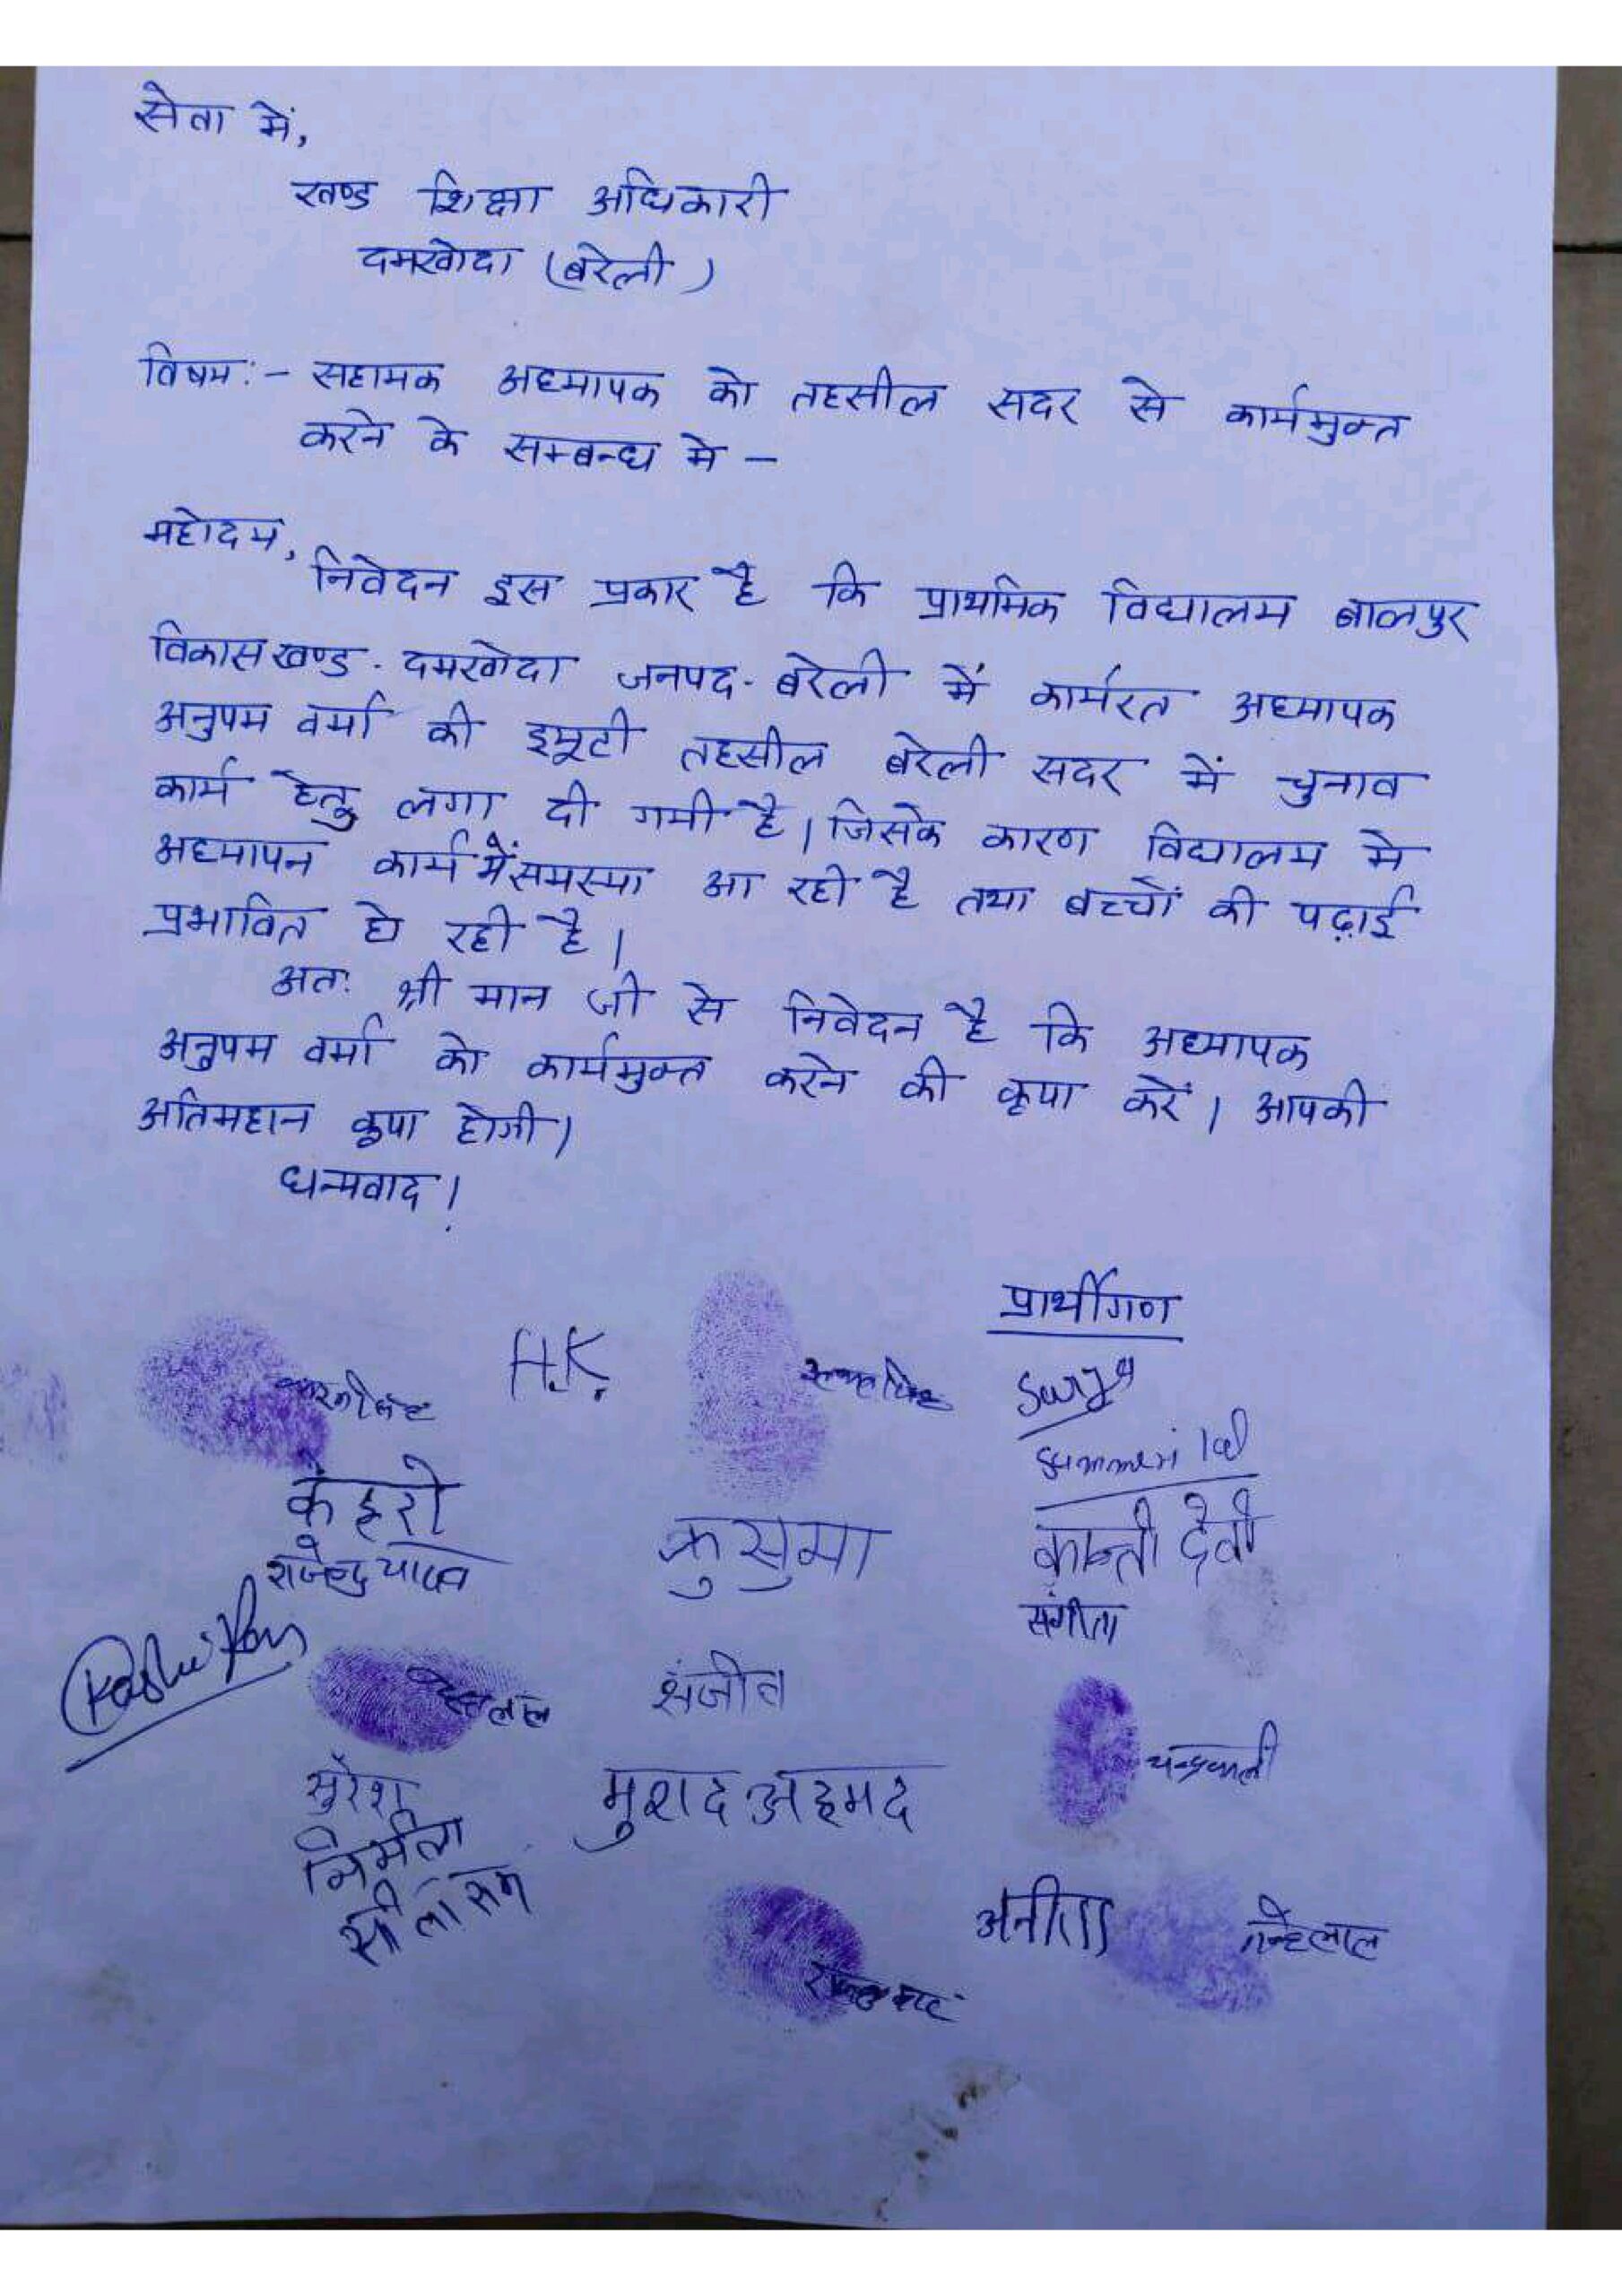 सेवा में,
खण्ड शिक्षा अधिकारी
दमखोदा (बरेली)
विषय:- सहायक अध्यापक को तहसील सदर से कार्यमुक्त
करने के सम्बन्ध मे -
महोदय,
निवेदन इस प्रकार है कि प्राथमिक विद्यालय बालपुर
विकासखण्ड - दमखोदा जनपद - बरेली में कार्यरत अध्यापक
अनुपम वर्मा की ड्यूटी तहसील बरेली सदर में चुनाव
कार्य हेतु लगा दी गयी है। जिसके कारण विद्यालय मे
अध्यापन कार्य में समस्या आ रही है तथा बच्चों की पढ़ाई
प्रभावित हो रही है।
अतः श्री मान जी से निवेदन है कि अध्यापक
अनुपम वर्मा को कार्यमुक्त करने की कृपा करें। आपकी
अतिमहान कृपा होगी।
धन्यवाद!
प्रार्थीगण
H.K.
कुसुमा
कान्ती देवी
संगीता
संजीव
चन्द्रकली
सुरेश
मुशद अहमद
निर्मला
अनीता
नन्हेलाल